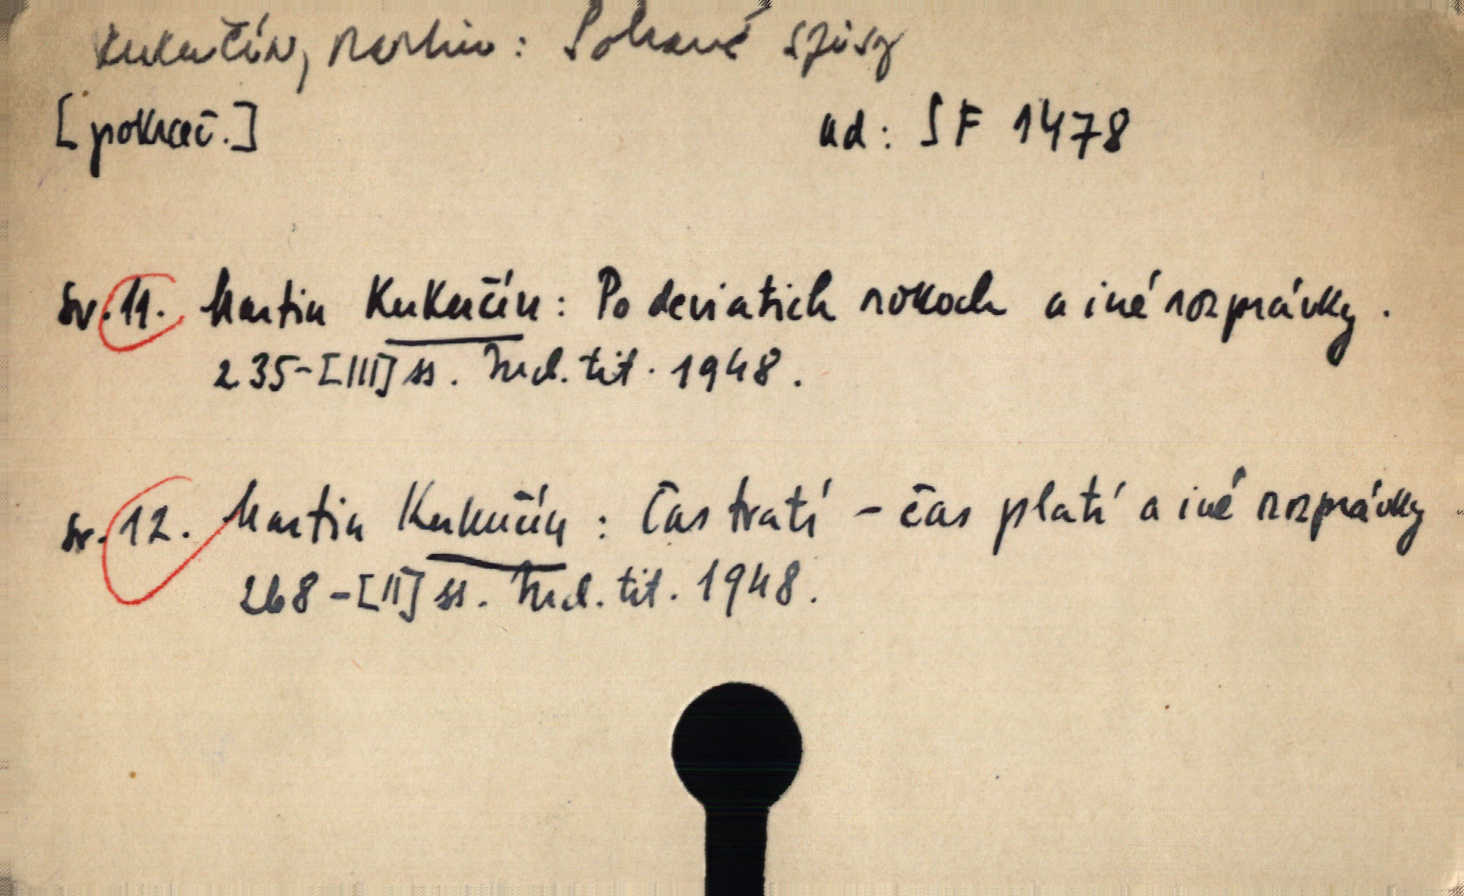 Kukučín, Martin: Sobrané spisy
[pokrač.] ad: SF 1478
sv. 11. Martin Kukučín: Po deviatich rokoch a iné rozprávky.
235-[III] ss. Ind. tit. 1948.
sv. 12. Martin Kukučín: Čas tratí - čas platí a iné rozprávky.
268-[II] ss. Ind. tit. 1948.